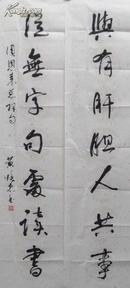 與有肝胆人共事
從無字句處讀書
周恩来总理句